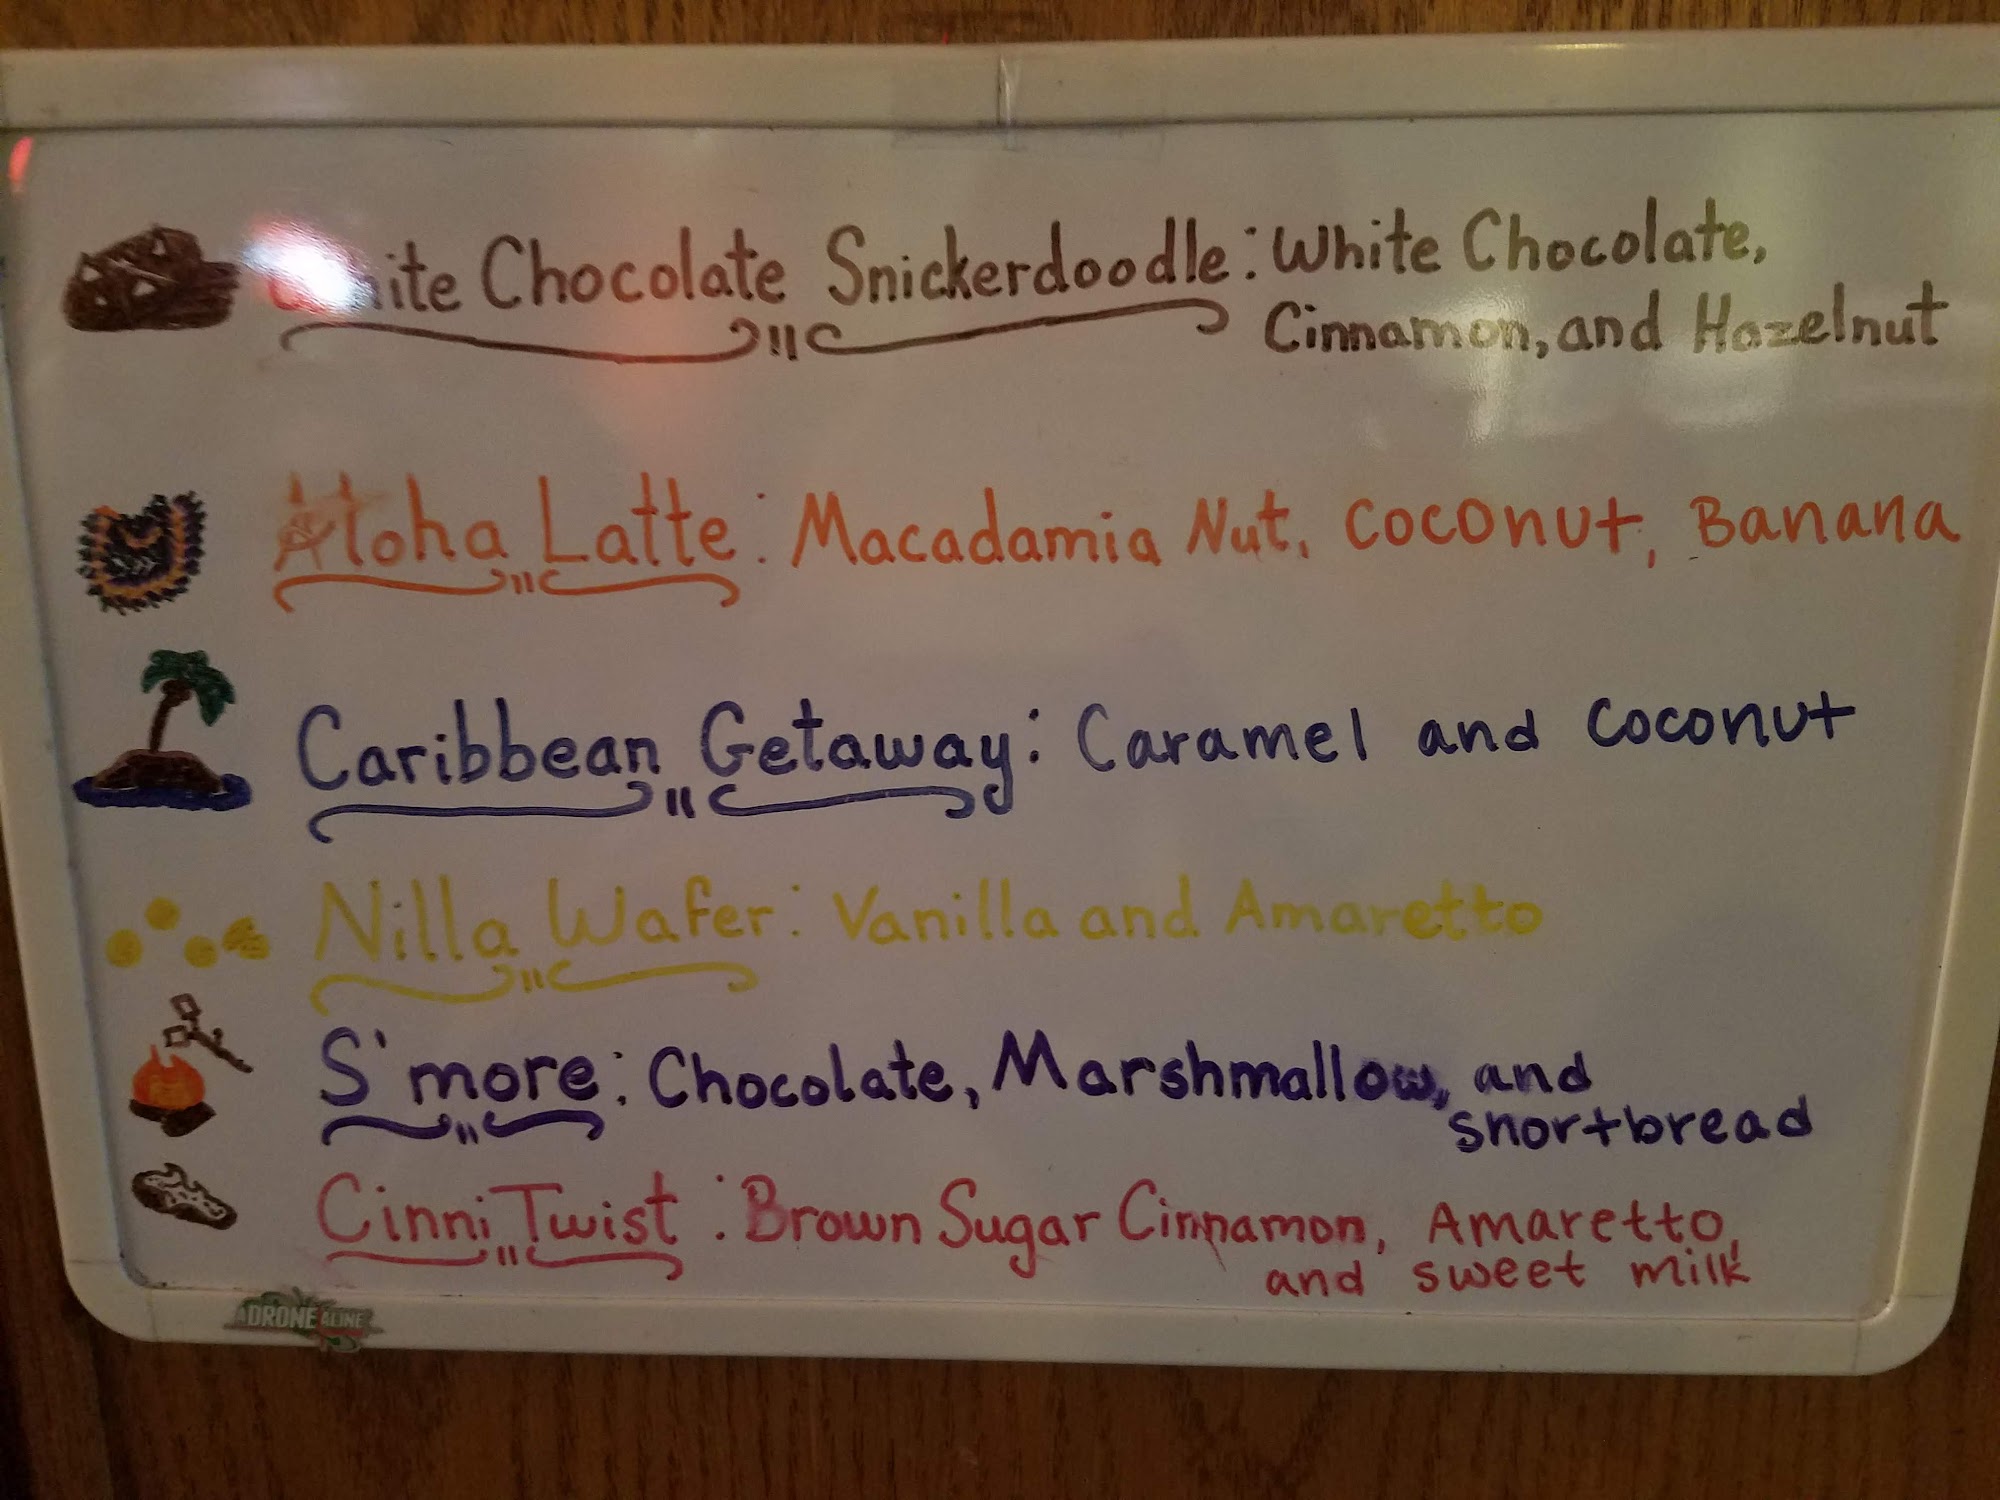 White Chocolate Snickerdoodle: White Chocolate,
Cinnamon, and Hazelnut
Aloha Latte: Macadamia Nut, Coconut, Banana
Caribbean Getaway: Caramel and Coconut
Nilla Wafer: Vanilla and Amaretto
S'more: Chocolate, Marshmallow, and
shortbread
Cinni Twist: Brown Sugar Cinnamon, Amaretto,
and sweet milk
DRONE